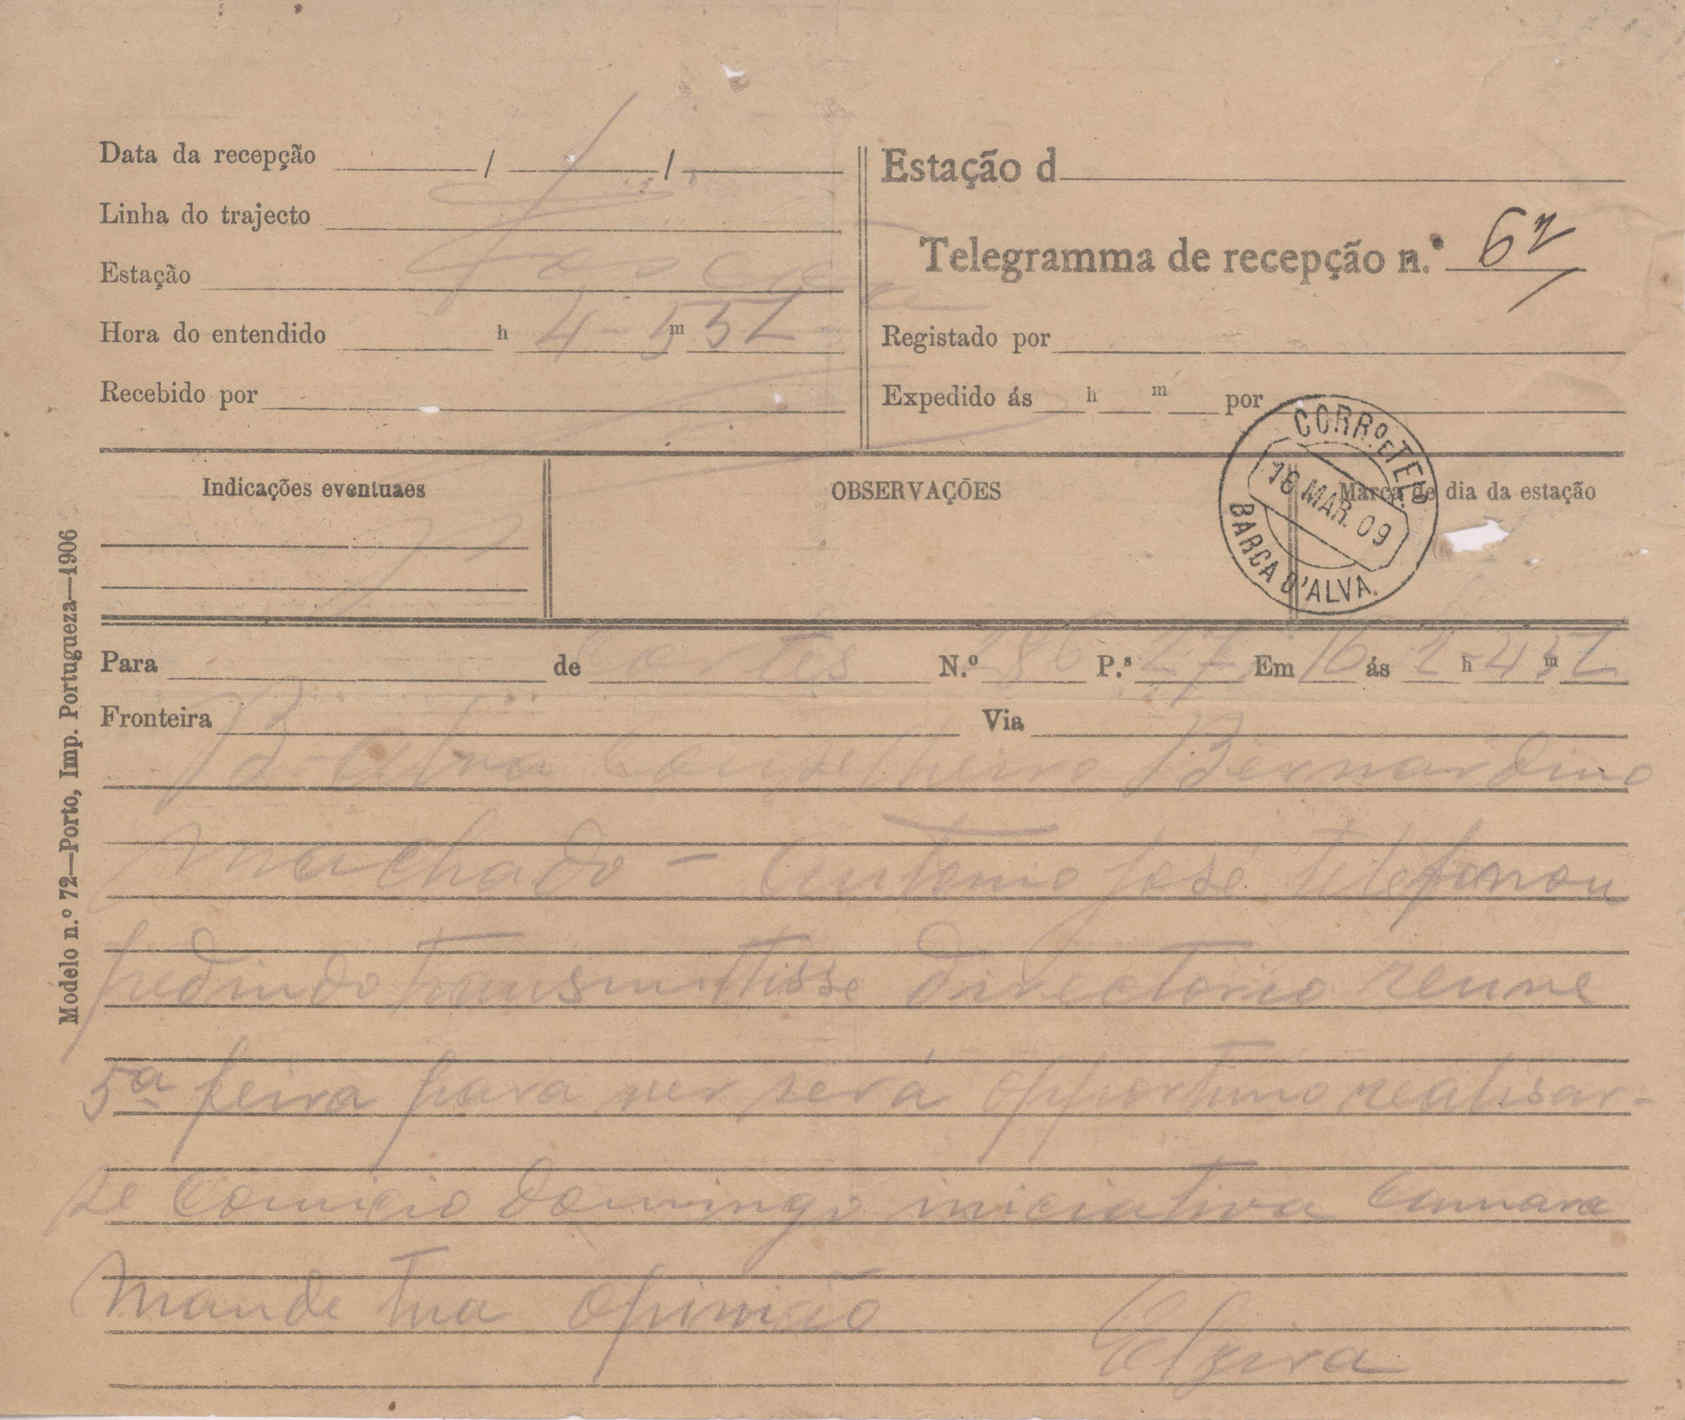 Data da recepção / /
Linha do trajecto
Estação
Hora do entendido h 4-55 m T
Recebido por
Estação d
Telegramma de recepção n.º 62
Registado por
Expedido ás h m por
CORRº E TEL.
18 MAR. 09
BARCA D'ALVA.
Indicações eventuaes
OBSERVAÇÕES
Marca de dia da estação
Modelo n.º 72—Porto, Imp. Portugueza—1906
Para de Cortes N.º 286 P.ˢ 27 Em 16 ás 2 h 45 m T
Fronteira Via
B. Alva Conselheiro Bernardino
Machado - Antonio José telefonou
pedindo transmittisse directorio reune
5ª feira para ver será opportuno realisar-
se comicio domingo iniciativa Camara
Mande tua opinião
Elzira